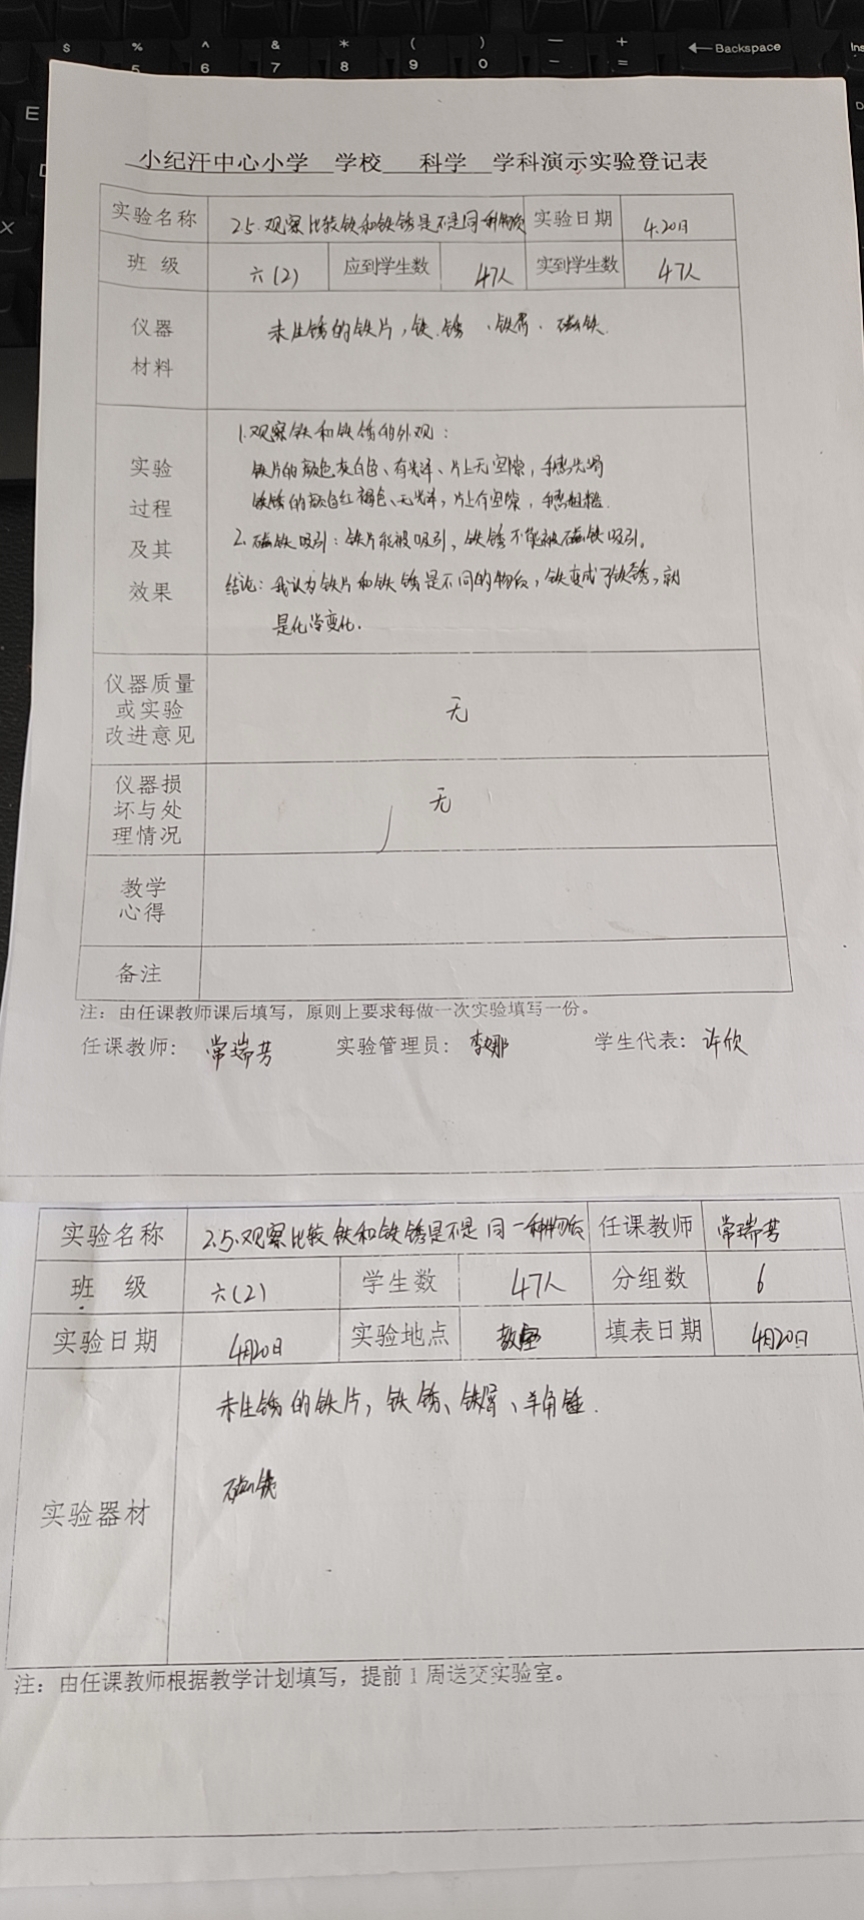 $ % ^ & * ( ) — +
5 6 7 8 9 0 - = ←Backspace Ins
E
小纪汗中心小学 学校 科学 学科演示实验登记表
实验名称 2.5.观察比较铁和铁锈是不是同一种物质 实验日期 4.20日
班 级 六(2) 应到学生数 47人 实到学生数 47人
仪器材料 未生锈的铁片,铁锈、铁屑、磁铁.
实验过程及其效果
1.观察铁和铁锈的外观:
铁片的颜色灰白色、有光泽、片上无空隙,手感光滑
铁锈的颜色红褐色、无光泽,片上有空隙,手感粗糙.
2.磁铁吸引:铁片能被吸引,铁锈不能被磁铁吸引。
结论:我认为铁片和铁锈是不同的物质,铁变成了铁锈,就
是化学变化.
仪器质量或实验改进意见 无
仪器损坏与处理情况 无
教学心得
备注
注:由任课教师课后填写,原则上要求每做一次实验填写一份。
任课教师: 常瑞芳 实验管理员: 李娜 学生代表: 许欣
实验名称 2.5.观察比较铁和铁锈是不是同一种物质 任课教师 常瑞芳
班 级 六(2) 学生数 47人 分组数 6
实验日期 4月20日 实验地点 教室 填表日期 4月20日
实验器材 未生锈的铁片,铁锈、铁屑、羊角锤.
磁铁
注:由任课教师根据教学计划填写,提前1周送交实验室。